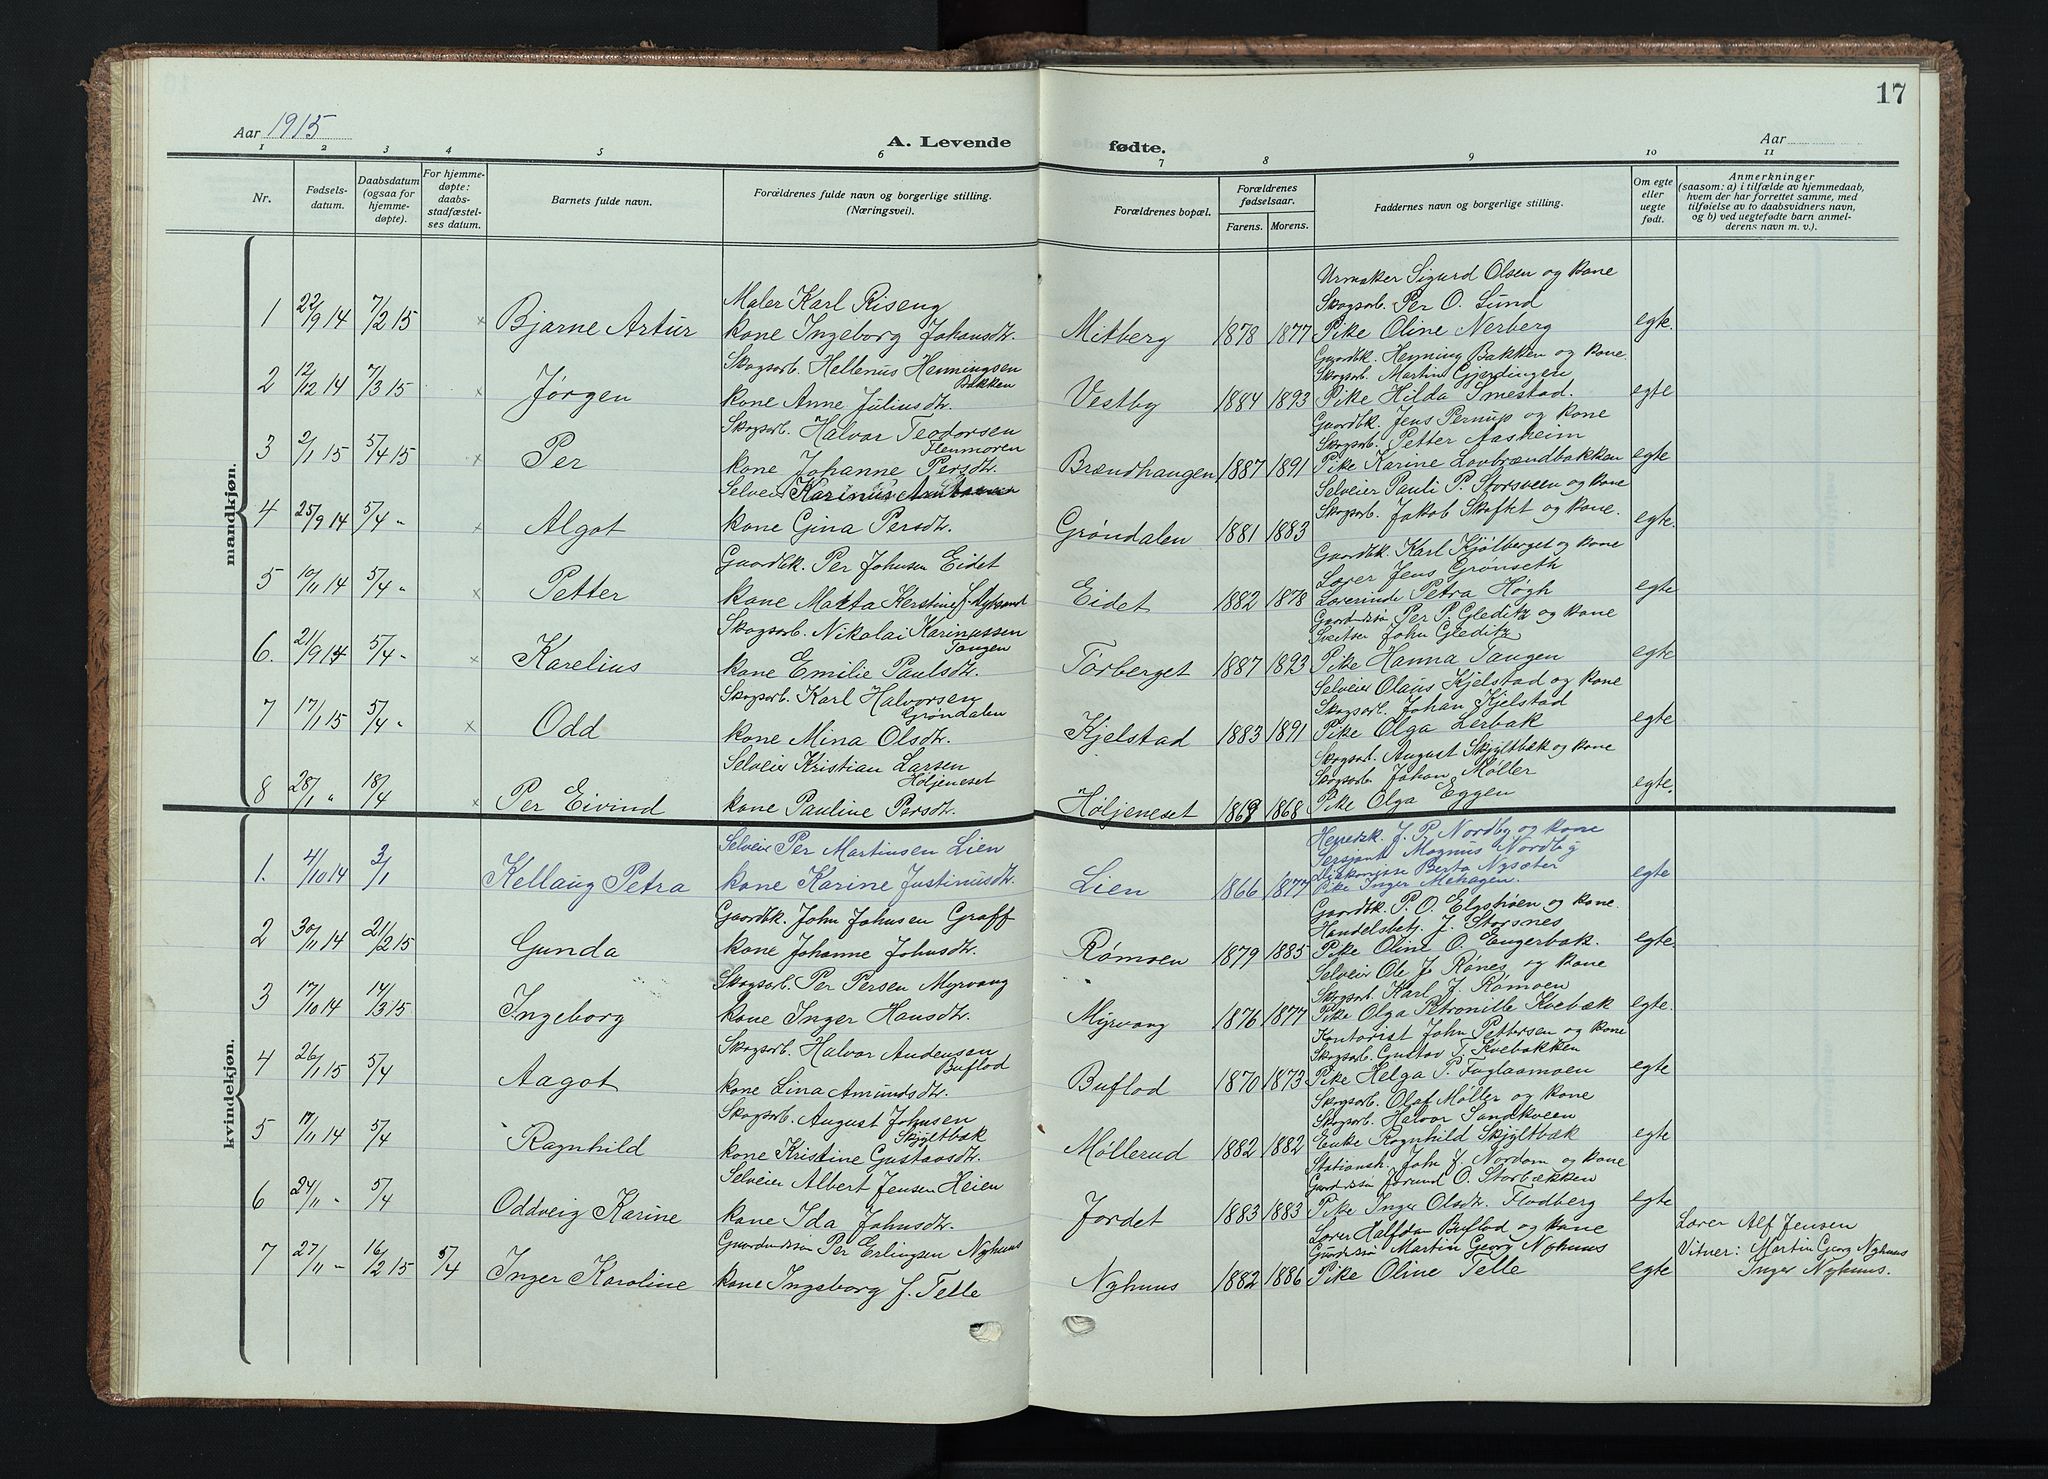 17
Aar 1915 A. Levende fødte. Aar
1 2 3 4 5 6 7 8 9 10 11
Nr. Fødselsdatum. Daabsdatum (ogsaa for hjemmedøpte). For hjemmedøpte: daabsstadfæstelses datum. Barnets fulde navn. Forældrenes fulde navn og borgerlige stilling. (Næringsvei). Forældrenes bopæl. Forældrenes fødselsaar. Farens. Morens. Faddernes navn og borgerlige stilling. Om egte eller uegte født. Anmerkninger (saasom: a) i tilfælde av hjemmedaab, hvem der har forrettet samme, med tilføielse av to daabsvidners navn, og b) ved uegtefødte barn anmelderens navn m. v.).
mandkjøn.
Maler Karl Riseng Urmaker Sigurd Olsen og kone
Skogsarb. Per O. Lund
1 22/9 14 7/2 15 × Bjarne Artur kone Ingeborg Johansdtr. Mitberg 1878 1877 Pike Oline Nerberg egte.
Skogsarb. Hellenus Henningsen Bakken Gaardbk. Henning Bakken og kone.
Skogsarb. Martin Gjerdingen
2 12/12 14 7/3 15 × Jørgen kone Anne Juliusdtr. Vestby 1884 1893 Pike Hilda Smestad. egte
Skogsarb. Halvor Teodorsen Flenmoren Gaardbk. Jens Pernup og kone
Skogsarb. Petter Aasheim
3 2/1 15 5/4 15 × Per kone Johanne Persdtr. Brændhaugen 1887 1891 Pike Karine Lovbrændbakken egte
Selveier Karinus Selveier Pauli P. Storsveen og kone
4 25/9 14 5/4 " × Algot kone Gina Persdtr. Grøndalen 1881 1883 Skogsarb. Jakob Skaftet og kone. egte
Gaardbk. Per Johnsen Eidet Gaardbk. Karl Kjølberget og kone
Lærer Jens Grønseth
5 10/11 14 5/4 " × Petter kone Marta Kerstine J. Eidet 1882 1878 Lærerinde Petra Høgh egte
Skogsarb. Nikolai Karinussen Tangen Gaardmdssøn Per P. Gleditz og kone
Sveitser John Gleditz
6. 21/9 14 5/4 - × Karelius kone Emilie Paulsdtr. Tørberget 1887 1893 Pike Hanna Tangen egte
Skogsarb. Karl Halvorsen Grøndalen Selveier Olaus Kjelstad og kone
Skogsarb. Johan Kjelstad
7 17/1 15 5/4 " × Odd kone Mina Olsdtr. Kjelstad 1883 1891 Pike Olga Lerbak egte
Selveier Kristian Larsen Høljeneset Skogsarb. August Skjyltbæk og kone
Skogsarb. Johan Møller
8 28/1 " 18/4 × Per Eivind kone Pauline Persdtr. Høljeneset 1868 Pike Olga Eggen egte.
kvindekjøn.
Selveier Per Martinsen Lien Herredsk. J. P. Nordby og kone
Sersjant Magnus Nordby
Berta Nysæter
1. 4/10 14 3/1 Kellaug Petra kone Karine Justinusdtr. Lien 1866 1877 Pike Inger Mehagen. egte
Gaardbk. John Johnsen Graff Gaardbk. P. O. Elgshøen og kone.
Handelsbetj. J. Storsnes
2 30/11 14 21/2 15 Gunda kone Johanne Johnsdtr. Rømoen 1879 1885 Pike Oline O. Engerbak. egte
Skogsarb. Per Persen Myrvang Selveier Ole J. Rønes og kone
Skogsarb. Karl J. Rømoen
3 17/10 14 14/3 15 Ingeborg kone Inger Hansdtr. Myrvang 1876 1877 Pike Olga Petronille Kvebæk egte.
Skogsarb. Halvor Andersen Buflod Kontorist John Pettersen og kone
Skogsarb. Gustav T. Kvebakken
4 26/1 15 5/4 Aagot kone Lina Amundsdtr. Buflod 1870 1873 Pike Helga P. Fuglaamoen egte
Skogsarb. August Johnsen Skjyltbak Skogsarb. Olaf Møller og kone
Skogsarb. Halvor Sandkveen
5 17/11 14 5/4 Ragnhild kone Kristine Gustavsdtr. Møllerud 1882 1882 Enke Ragnhild Skjyltbæk egte
Selveier Albert Jensen Heien Stationsk. John J. Nordom og kone
Gaardmdssøn O. Storbækken
6 24/11 " 5/4 Oddveig Karine kone Ida Johnsdtr. Jordet 1883 1883 Pike Inger Olsdtr. Flodberg egte
Gaardmdssøn Per Erlingsen Nyhuus Lærer Halfdan Buflod og kone Lærer Alf Jensen
Gaardmdssøn Martin Georg Nyhuus Vitner: Martin Georg Nyhuus
7 27/11 - 16/2 15 5/4 Inger Karoline kone Ingeborg J. Telle Nyhuus 1882 1886 Pike Oline Telle egte Inger Nyhuus.